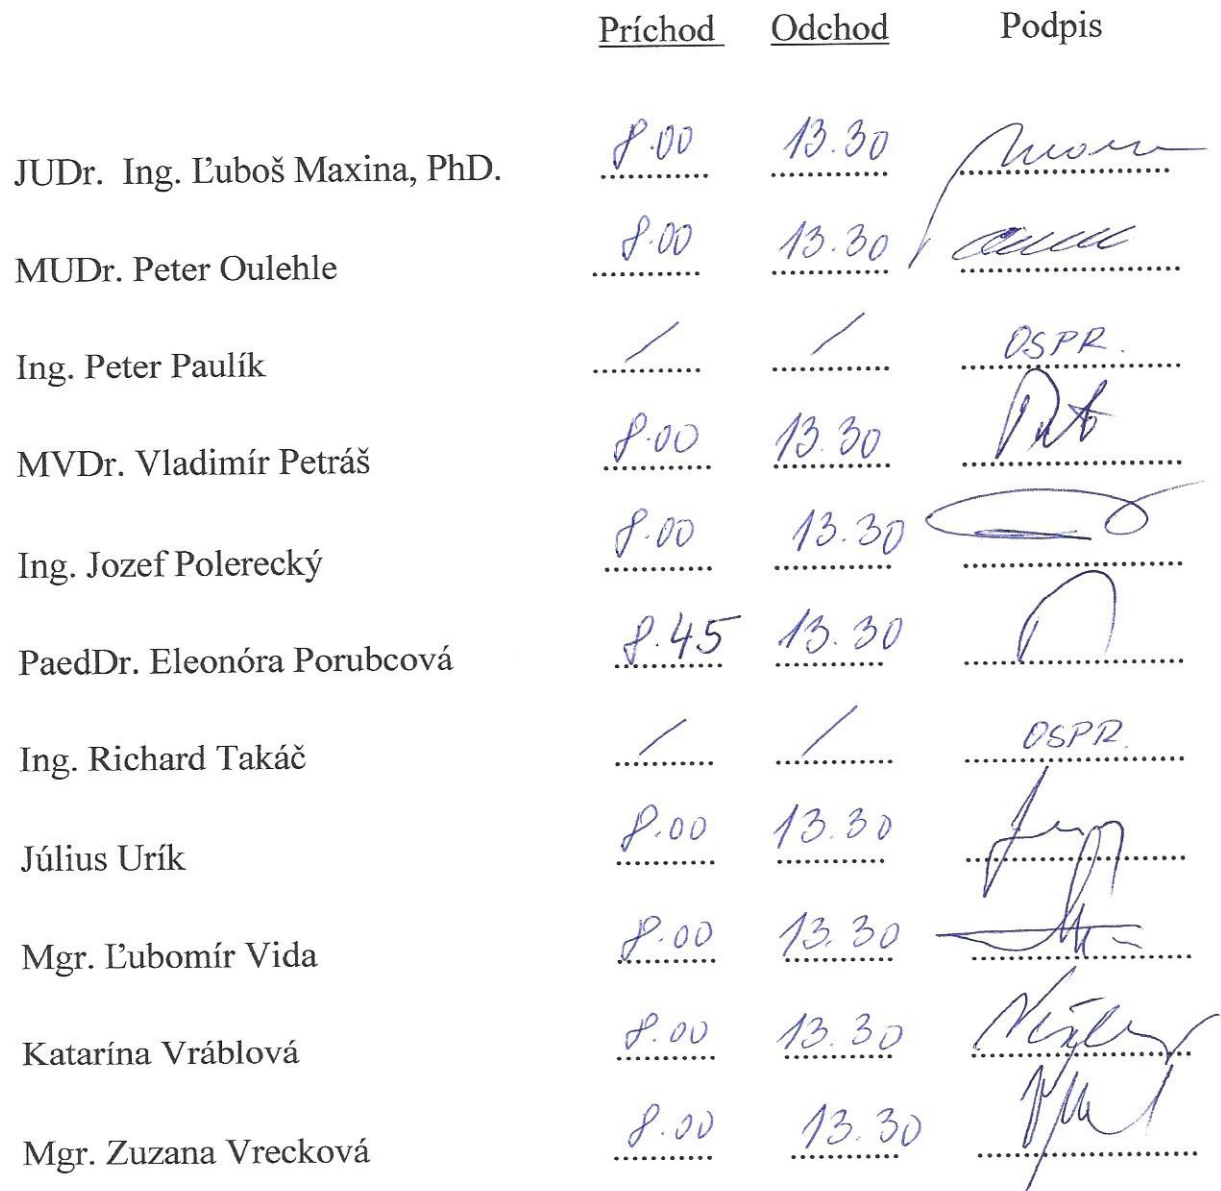 Príchod Odchod Podpis
JUDr. Ing. Ľuboš Maxina, PhD. 8.00 13.30
MUDr. Peter Oulehle 8.00 13.30
Ing. Peter Paulík / / OSPR.
MVDr. Vladimír Petráš 8.00 13.30
Ing. Jozef Polerecký 8.00 13.30
PaedDr. Eleonóra Porubcová 8.45 13.30
Ing. Richard Takáč / / OSPR.
Július Urík 8.00 13.30
Mgr. Ľubomír Vida 8.00 13.30
Katarína Vráblová 8.00 13.30
Mgr. Zuzana Vrecková 8.00 13.30